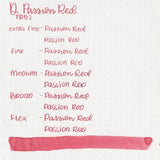 D. Passion Red
TD62
Extra Fine - Passion Red
Passion Red
Fine - Passion Red
Passion Red
Medium - Passion Red
Passion Red
Broad - Passion Red
Passion Red
Flex - Passion Red
Passion Red